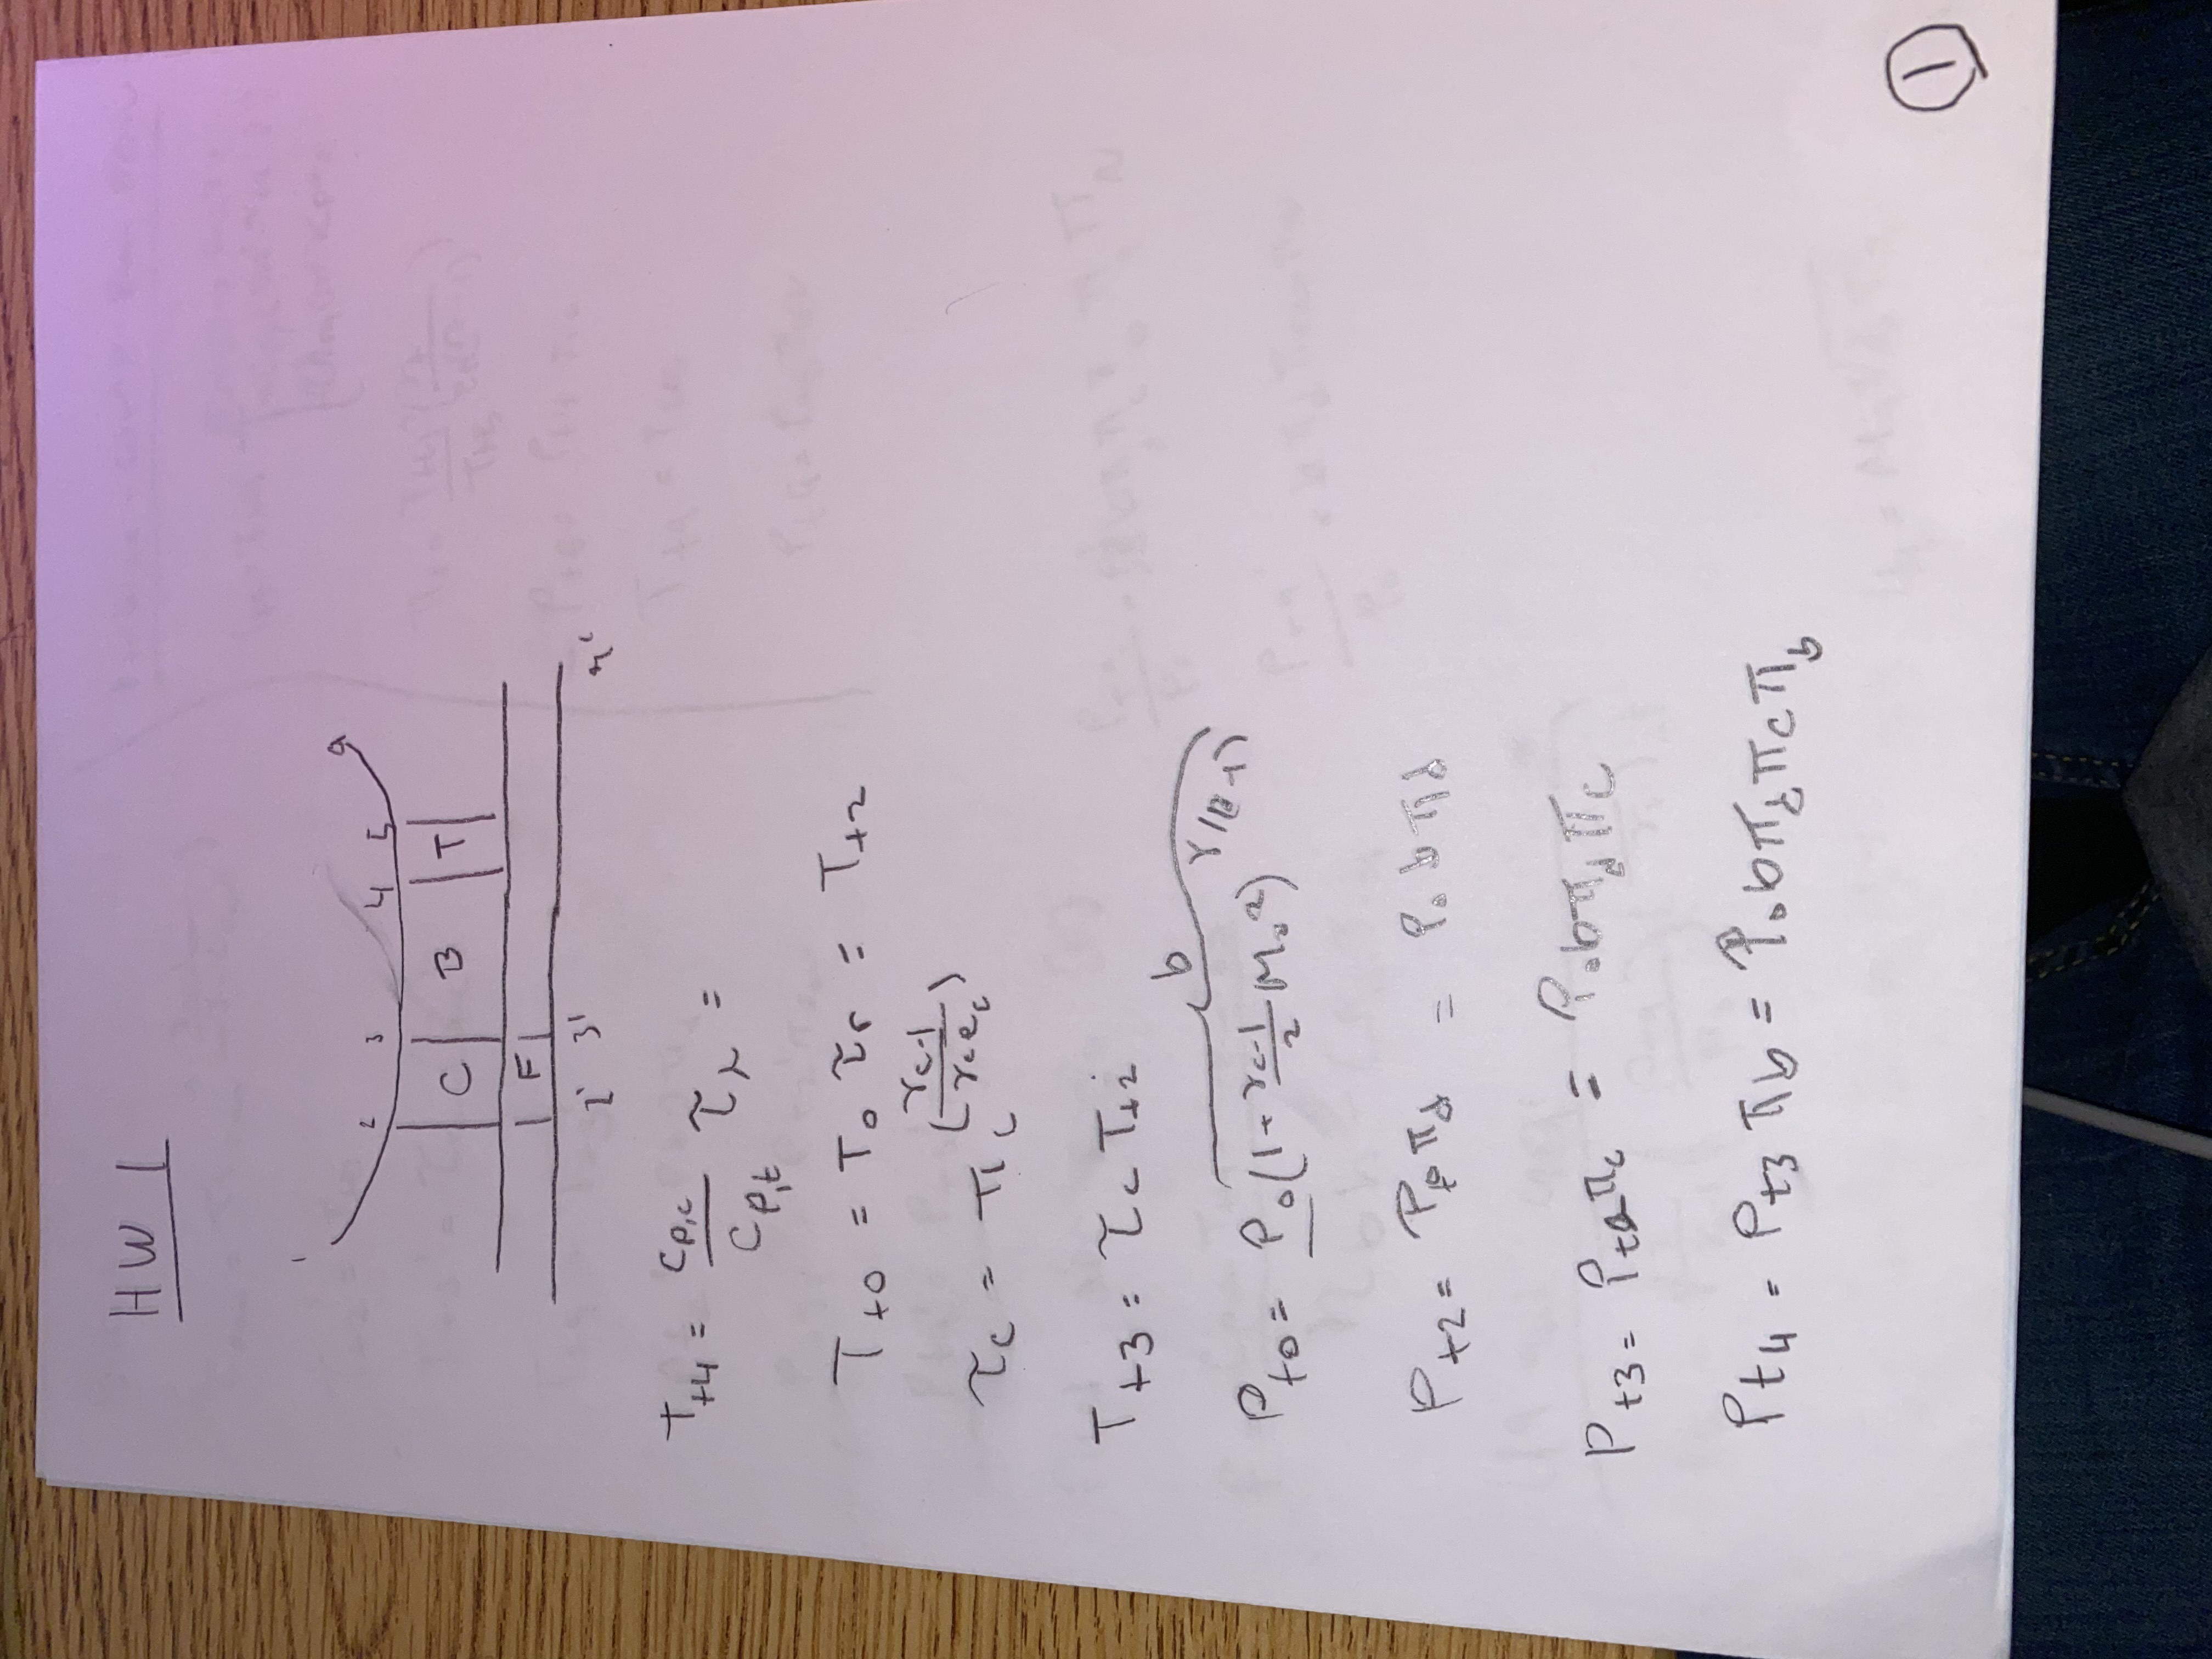 HW 1
1
2 3 4 5 9
C B T
F
2' 3' 9'
T_t4 = C_p,c / C_p,t τ_λ =
T_t0 = T_0 τ_r = T_t2
τ_c = π_c^((γ_c-1)/(γ_c e_c))
T_t3 = τ_c T_t2
b
P_t0 = P_0 (1 + (γ_c-1)/2 M_0^2)^γ/(γ-1)
P_t2 = P_t π_d = P_0 b π_d
P_t3 = P_t2 π_c = P_0 b π_d π_c
P_t4 = P_t3 π_b = P_0 b π_d π_c π_b
1